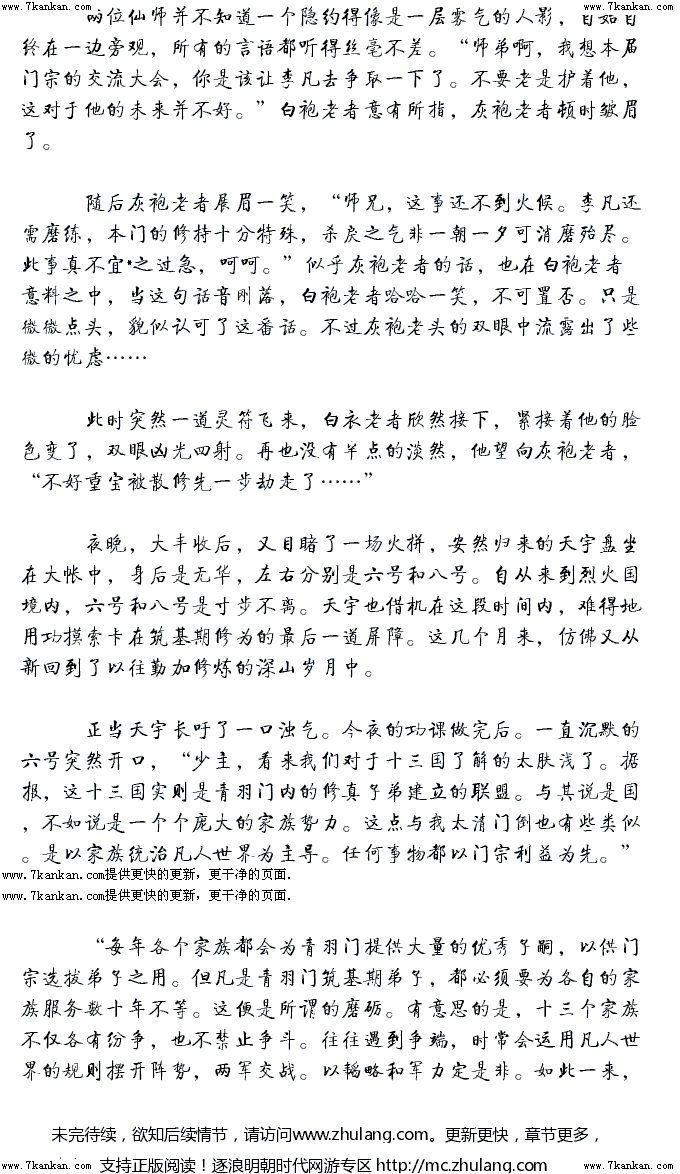 www.7kankan.com www.7kankan.com www.7kankan.com
两位仙师并不知道一个隐约得像是一层雾气的人影，自始自
终在一边旁观，所有的言语都听得丝毫不差。“师弟啊，我想本届
门宗的交流大会，你是该让李凡去争取一下了。不要老是护着他，
这对于他的未来并不好。”白袍老者意有所指，灰袍老者顿时皱眉
了。
随后灰袍老者展眉一笑，“师兄，这事还不到火候。李凡还
需磨练，本门的修持十分特殊，杀戾之气非一朝一夕可消磨殆尽。
此事真不宜*之过急，呵呵。”似乎灰袍老者的话，也在白袍老者
意料之中，当这句话音刚落，白袍老者哈哈一笑，不可置否。只是
微微点头，貌似认可了这番话。不过灰袍老头的双眼中流露出了些
微的忧虑……
此时突然一道灵符飞来，白衣老者欣然接下，紧接着他的脸
色变了，双眼凶光四射。再也没有半点的淡然，他望向灰袍老者，
“不好重宝被散修先一步劫走了……”
夜晚，大丰收后，又目睹了一场火拼，安然归来的天宇盘坐
在大帐中，身后是无华，左右分别是六号和八号。自从来到烈火国
境内，六号和八号是寸步不离。天宇也借机在这段时间内，难得地
用功摸索卡在筑基期修为的最后一道屏障。这几个月来，仿佛又从
新回到了以往勤加修炼的深山岁月中。
正当天宇长吁了一口浊气。今夜的功课做完后。一直沉默的
六号突然开口，“少主，看来我们对于十三国了解的太肤浅了。据
报，这十三国实则是青羽门内的修真子弟建立的联盟。与其说是国
，不如说是一个个庞大的家族势力。这点与我太清门倒也有些类似
。是以家族统治凡人世界为主导。任何事物都以门宗利益为先。”
www.7kankan.com提供更快的更新，更干净的页面.
www.7kankan.com提供更快的更新，更干净的页面.
“每年各个家族都会为青羽门提供大量的优秀子嗣，以供门
宗选拔弟子之用。但凡是青羽门筑基期弟子，都必须要为各自的家
族服务数十年不等。这便是所谓的磨砺。有意思的是，十三个家族
不仅各有纷争，也不禁止争斗。往往遇到争端，时常会运用凡人世
界的规则摆开阵势，两军交战。以韬略和军力定是非。如此一来，
未完待续，欲知后续情节，请访问www.zhulang.com。更新更快，章节更多，
支持正版阅读！逐浪明朝时代网游专区 http://mc.zhulang.com
www.7kankan.com www.7kankan.com